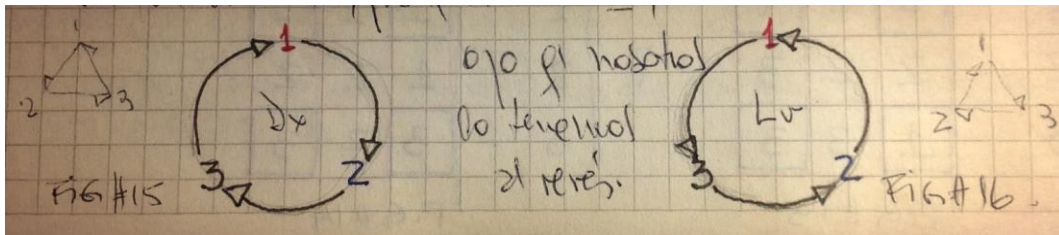 1
2 3
1
Dx
3 2
FIG #15
ojo q' nosotros
lo tenemos
al revés.
1
Lv
3 2
FIG #16.
1
2 3